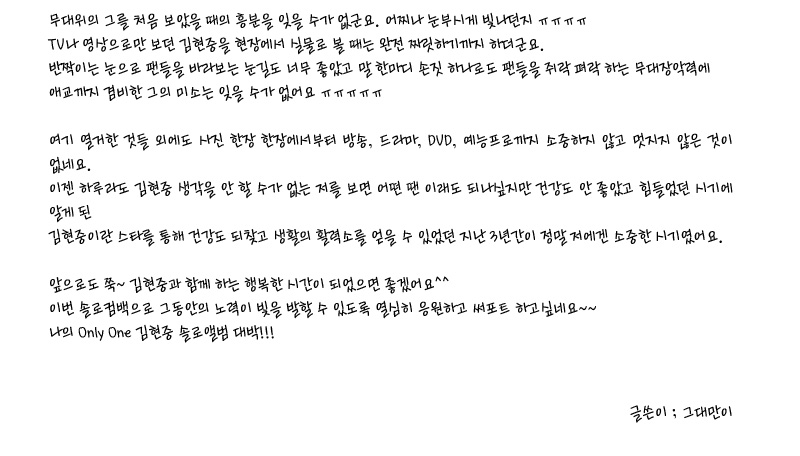 무대위의 그를 처음 보았을 때의 흥분을 잊을 수가 없군요. 어찌나 눈부시게 빛나던지 ㅠㅠㅠㅠ
TV나 영상으로만 보던 김현중을 현장에서 실물로 볼 때는 완전 짜릿하기까지 하더군요.
반짝이는 눈으로 팬들을 바라보는 눈길도 너무 좋았고 말 한마디 손짓 하나로도 팬들을 쥐락 펴락 하는 무대장악력에
애교까지 겸비한 그의 미소는 잊을 수가 없어요 ㅠㅠㅠㅠㅠ
여기 열거한 것들 외에도 사진 한장 한장에서부터 방송, 드라마, DVD, 예능프로까지 소중하지 않고 멋지지 않은 것이
없네요.
이젠 하루라도 김현중 생각을 안 할 수가 없는 저를 보면 어떤 땐 이래도 되나싶지만 건강도 안 좋았고 힘들었던 시기에
알게 된
김현중이란 스타를 통해 건강도 되찾고 생활의 활력소를 얻을 수 있었던 지난 3년간이 정말 저에겐 소중한 시기였어요.
앞으로도 쭉~ 김현중과 함께 하는 행복한 시간이 되었으면 좋겠어요^^
이번 솔로컴백으로 그동안의 노력이 빛을 발할 수 있도록 열심히 응원하고 써포트 하고싶네요~~
나의 Only One 김현중 솔로앨범 대박!!!
글쓴이 ; 그대만이